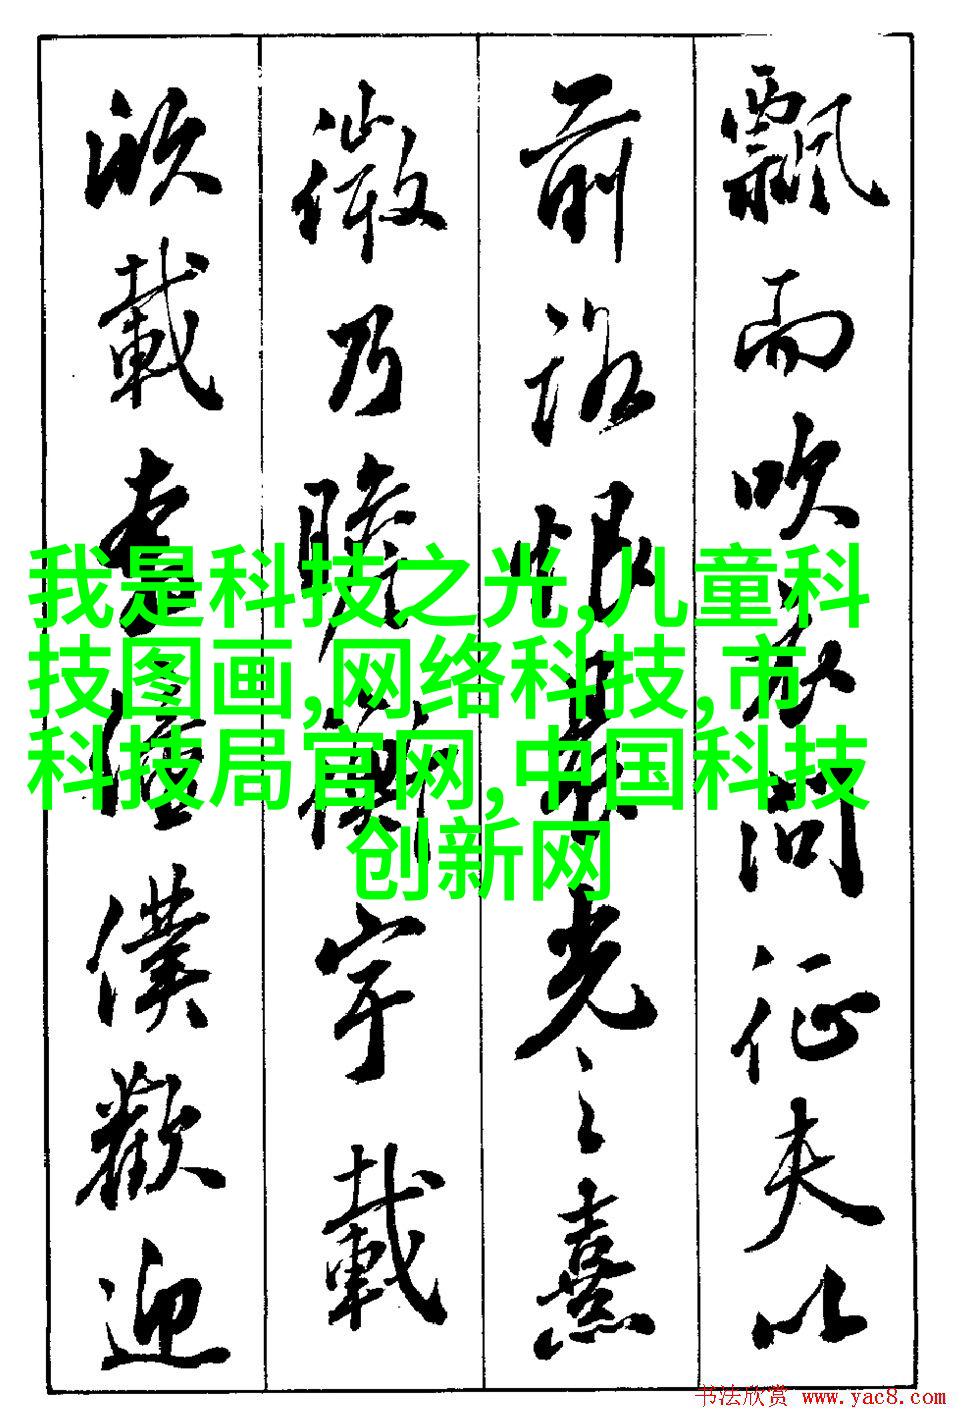 飄而吹衣問征夫以
前路恨晨光之熹
微乃瞻衡宇載
欣載奔僮僕歡迎
我是科技之光,儿童科
技图画,网络科技,市
科技局官网,中国科技
创新网
书法欣赏 www.yac8.com